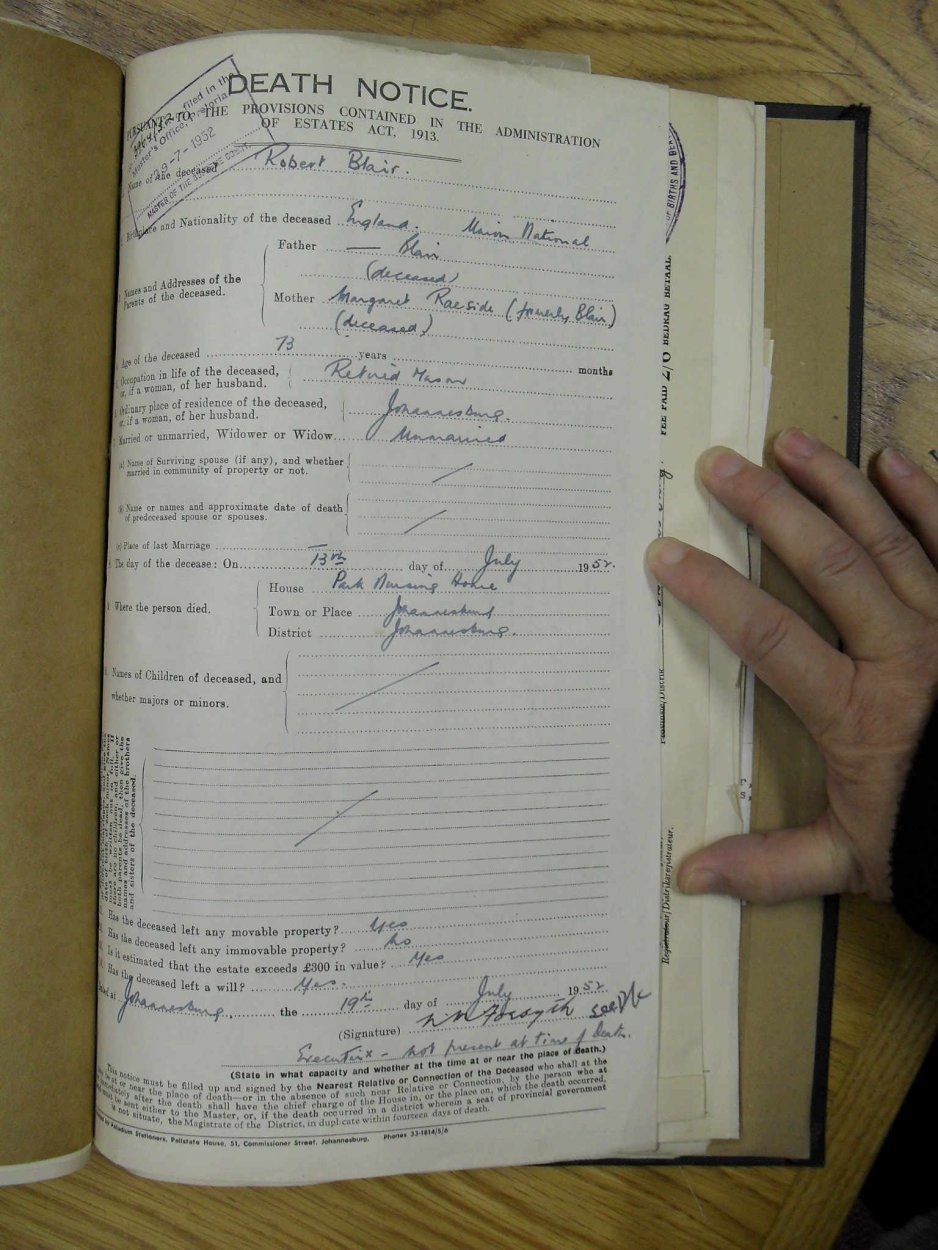 DEATH NOTICE.
PURSUANT TO THE PROVISIONS CONTAINED IN THE ADMINISTRATION
OF ESTATES ACT, 1913.
filed in the
Master's Office, Pretoria
29-7-1952
MASTER OF THE SUPREME COURT
Name of the deceased Robert Blair.
Birthplace and Nationality of the deceased England. Union National
Names and Addresses of the
Parents of the deceased.
Father — Blair
(deceased)
Mother Margaret Raeside (formerly Blair)
(deceased)
Age of the deceased 73 years months
Occupation in life of the deceased,
or, if a woman, of her husband. Retired Mason
Ordinary place of residence of the deceased,
or, if a woman, of her husband. Johannesburg.
Married or unmarried, Widower or Widow Unmarried
(a) Name of Surviving spouse (if any), and whether
married in community of property or not.
(b) Name or names and approximate date of death
of predeceased spouse or spouses.
(c) Place of last Marriage —
The day of the decease: On 13th day of July 1952.
Where the person died.
House Park Nursing Home
Town or Place Johannesburg
District Johannesburg.
Names of Children of deceased, and
whether majors or minors.
there are no children, and either or
both parents be dead, then give the
names and addresses of the brothers
and sisters of the deceased.
Has the deceased left any movable property? Yes
Has the deceased left any immovable property? No
Is it estimated that the estate exceeds £300 in value? Yes
Has the deceased left a will? Yes.
Dated at Johannesburg. the 19th day of July 1952
(Signature) Forsyth
Executrix - not present at time of death.
(State in what capacity and whether at the time at or near the place of death.)
This notice must be filled up and signed by the Nearest Relative or Connection of the Deceased who shall at the
be at or near the place of death—or in the absence of such near Relative or Connection, by the person who at
immediately after the death shall have the chief charge of the House in, or the place on, which the death occurred,
and must be sent either to the Master, or, if the death occurred in a district wherein a seat of provincial government
is not situate, the Magistrate of the District, in duplicate within fourteen days of death.
Palladium Stationers, Pallstate House, 51, Commissioner Street, Johannesburg. Phones 33-1814/5/6
OF BIRTHS AND
FEE PAID 2/6 BEDRAG BETAAL.
Registrateur/Distriksregistrateur.